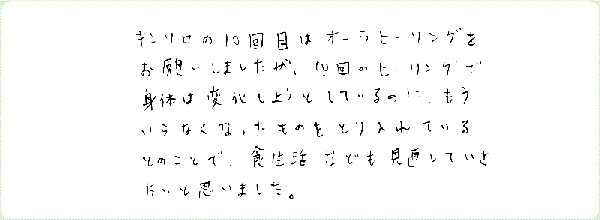 キンソロの10回目はオーラヒーリングを
お願いしましたが、10回のヒーリングで
身体は変化しようとしているのに、もう
いらなくなったものをとり入れている
とのことで、食生活なども見直していき
たいと思いました。